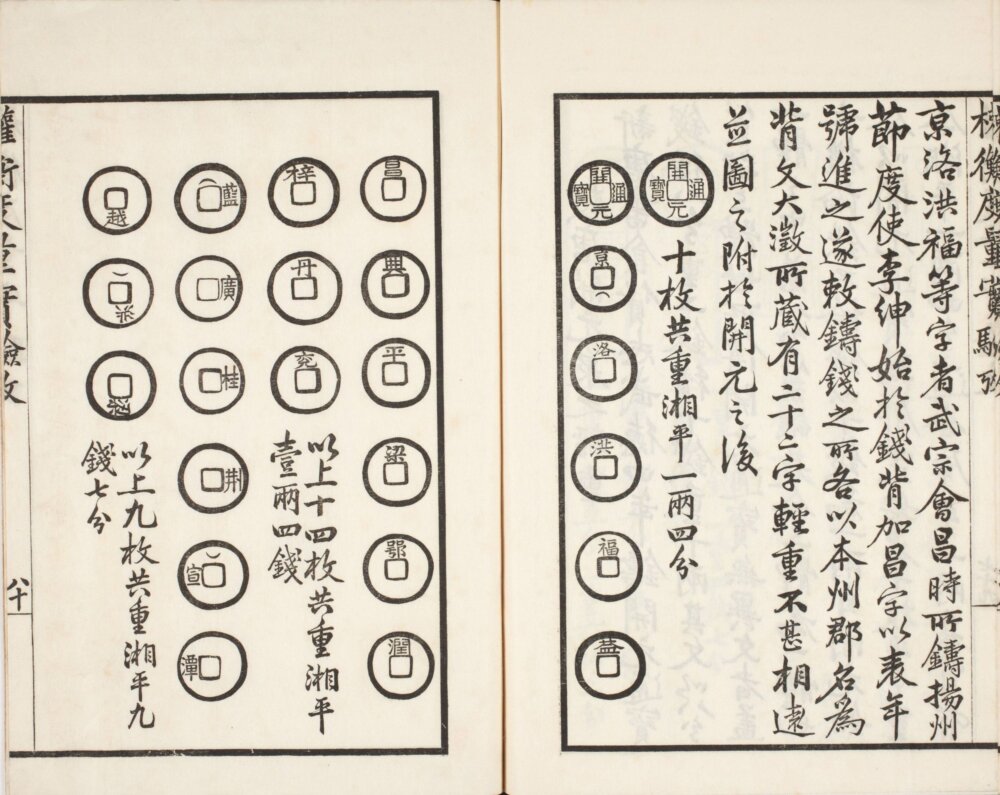 權衡度量實驗攷
京洛洪福等字者武宗會昌時所鑄揚州
節度使李紳始於錢背加昌字以表年
號進之遂敕鑄錢之所各以本州郡名為
背文大澂所藏有二十二字輕重不甚相遠
並圖之附於開元之後
開元通寶
十枚共重湘平一兩四分
開元通寶
京
洛
洪
福
益
昌
興
平
梁
鄂
潤
梓
丹
兗
以上十四枚共重湘平
壹兩四錢
藍
廣
桂
荊
宣
潭
越
以上九枚共重湘平九
錢七分
權衡度量實驗攷
八十